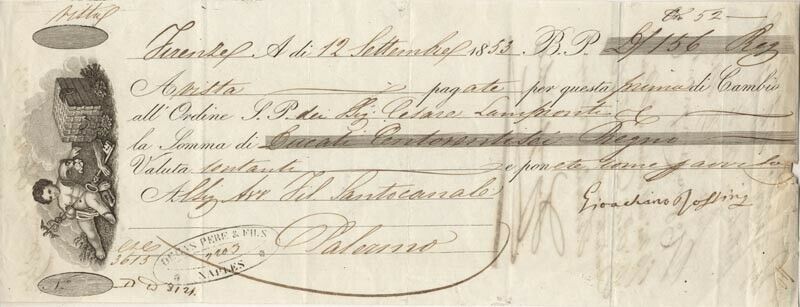 52
Firenze A di 12 Settembre 1853 B. P. D.i 156 Reg
A vista pagate per questa prima di Cambio
all'Ordine S. P. dei Sig. Cesare Lampronti
la Somma di Ducati Regno
Valuta contanti e ponete come
Avv Fil Santocanale
Gioachino Rossini
Palermo
PERE & FILS
NAPLES
3615